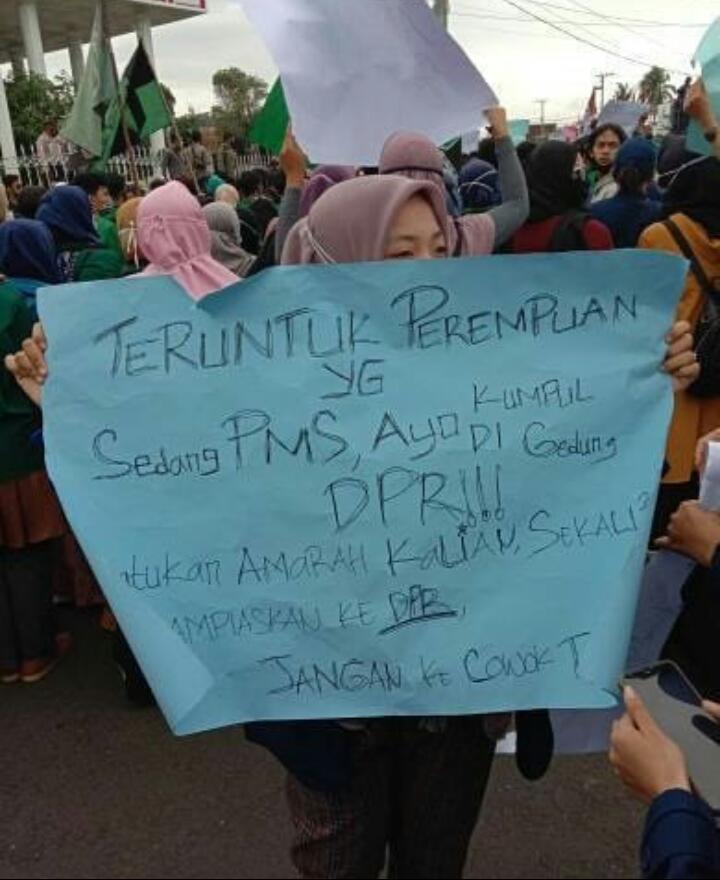 TERUNTUK PEREMPUAN
YG
Sedang PMS, Ayo KUMPUL
DI Gedung
DPR!!!
tukan AMARAH KALIAN, SEKALI²
AMPIASKAN KE DPR,
JANGAN KE COWOK T